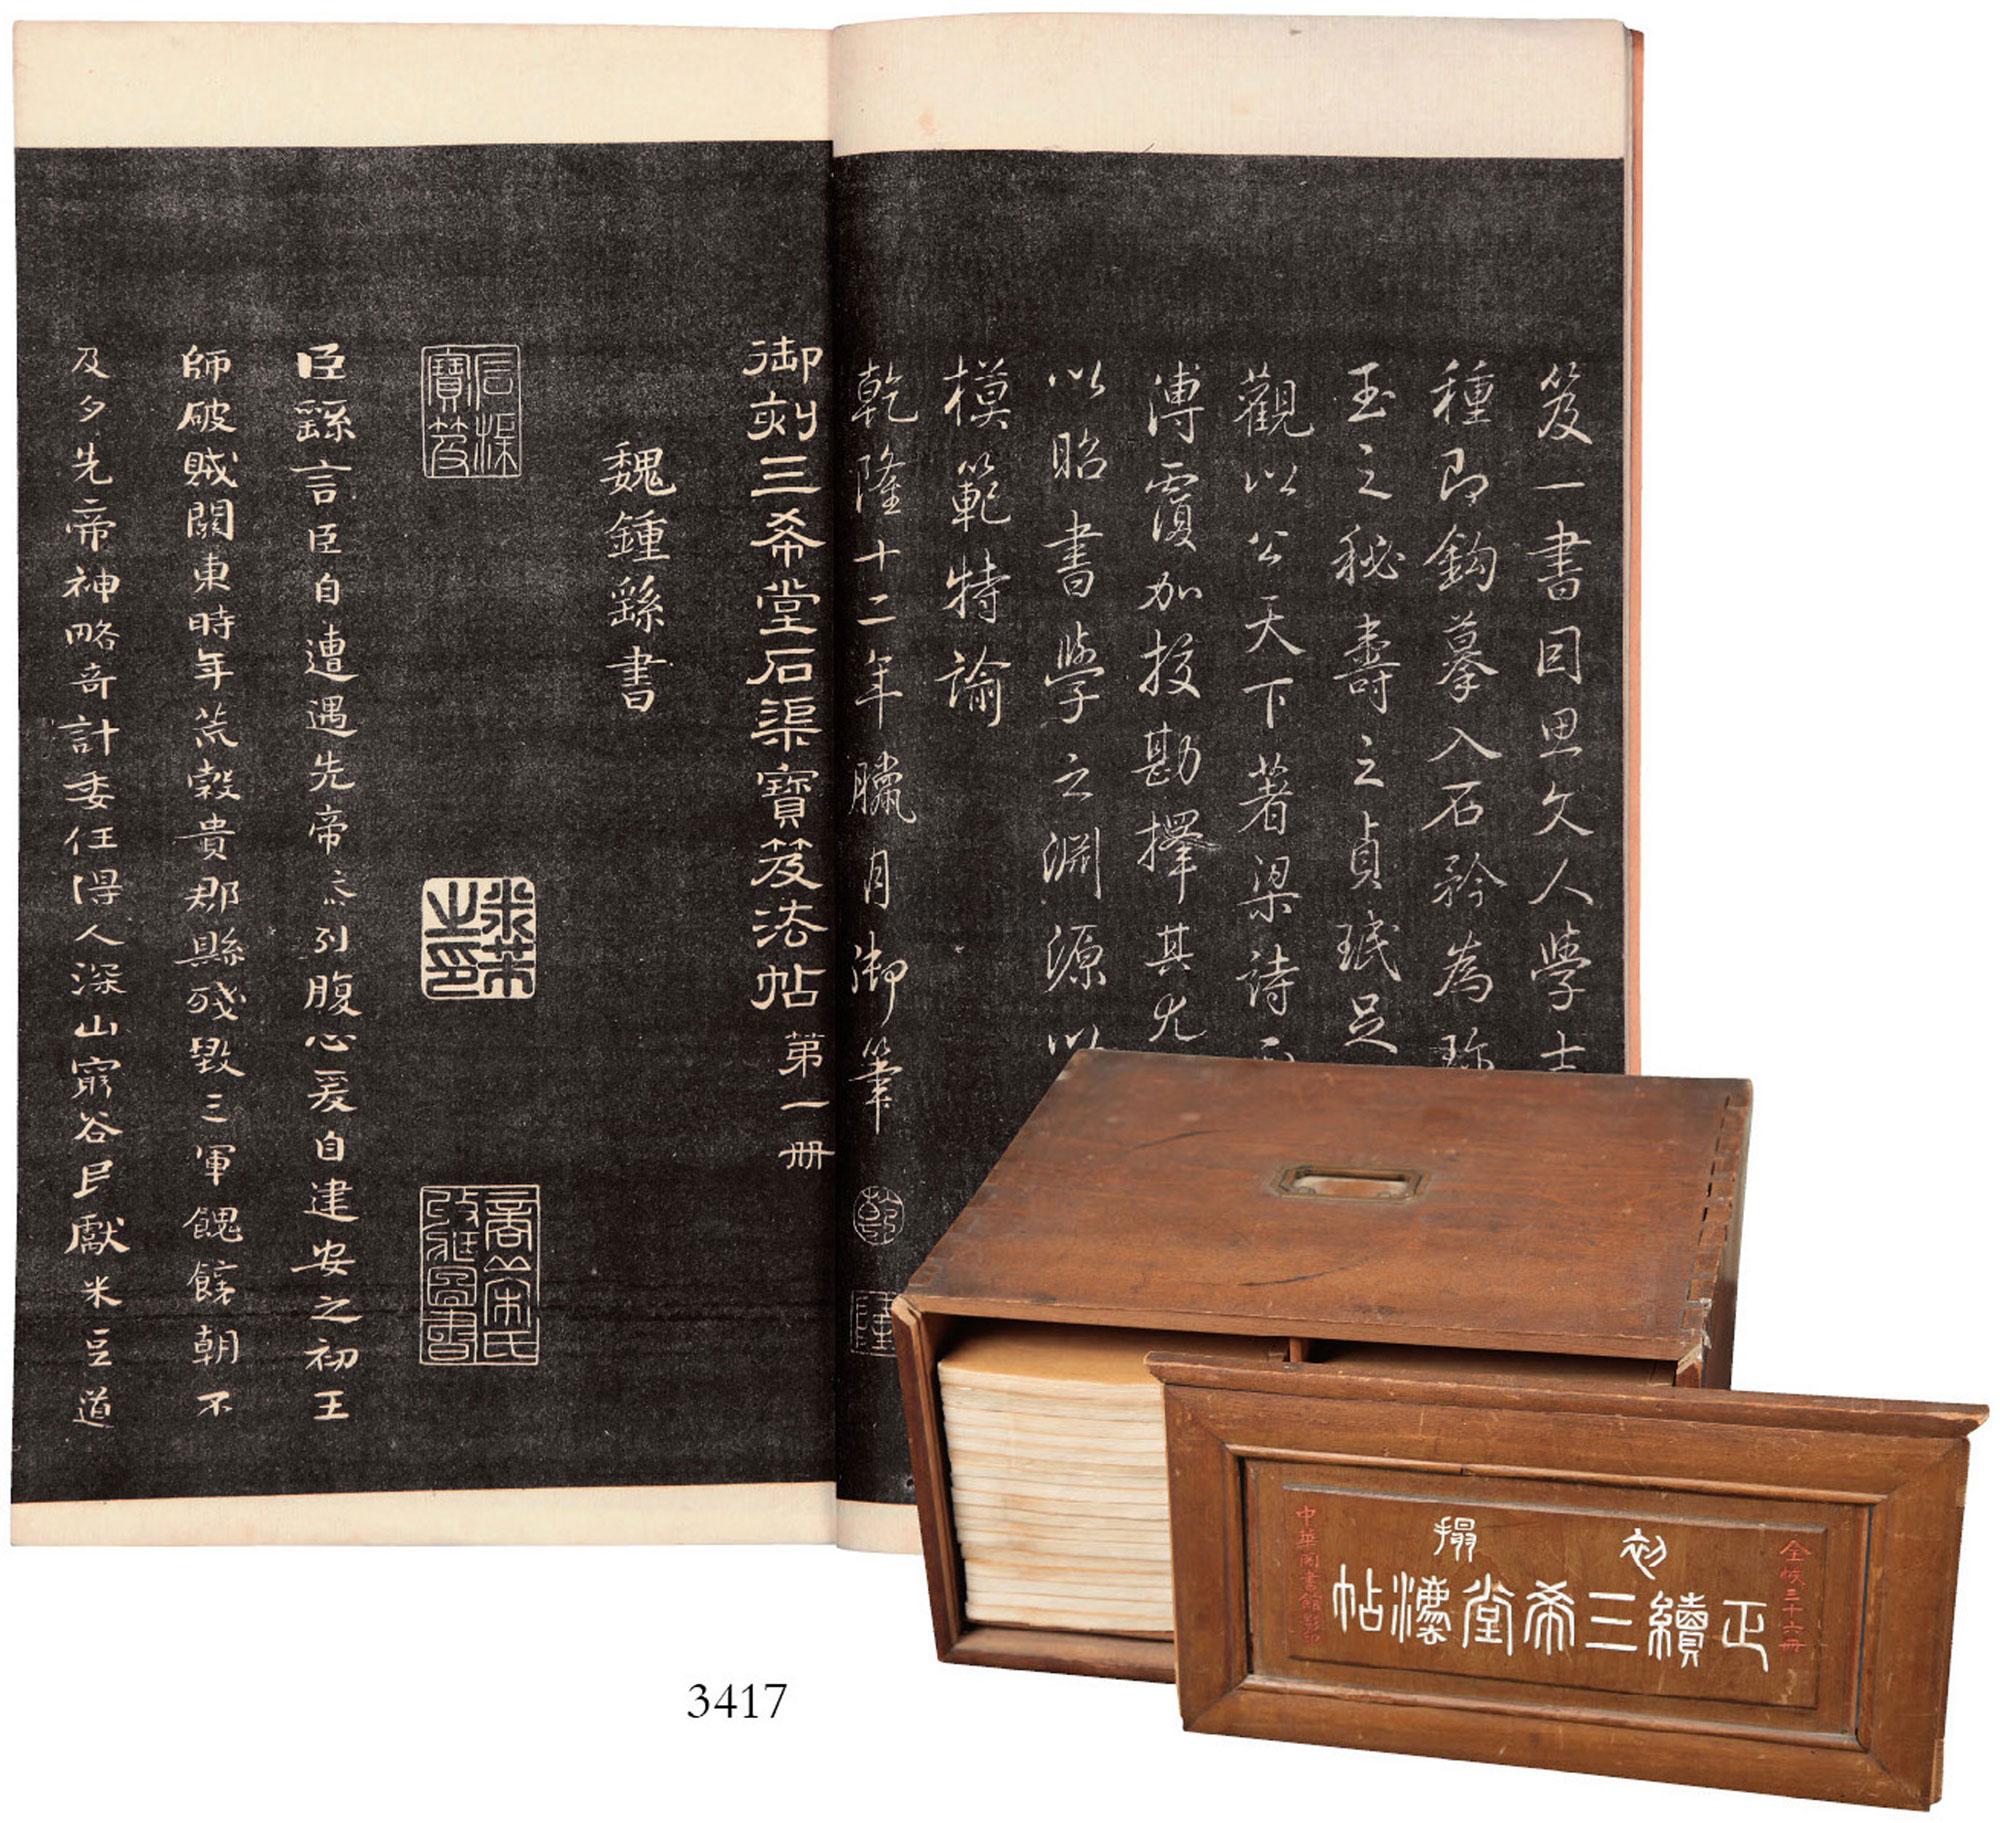 笈一書因思文人學士
種即鉤摹入石矜為珍
玉之秘壽之貞珉足
觀以公天下著梁詩
溥覆加挍勘擇其尤
以昭書學之淵源以
模範特諭
乾隆十二年臘月御筆
乾
隆
御刻三希堂石渠寶笈法帖第一冊
魏鍾繇書
石渠寶笈
臣繇言臣自遭遇先帝忝列腹心爰自建安之初王
師破賊關東時年荒穀貴郡縣殘毀三軍餽饟朝不
及夕先帝神略奇計委任得人深山窮谷民獻米豆道
全帙三十六冊
初搨
正續三希堂灋帖
中華圖書館影印
3417